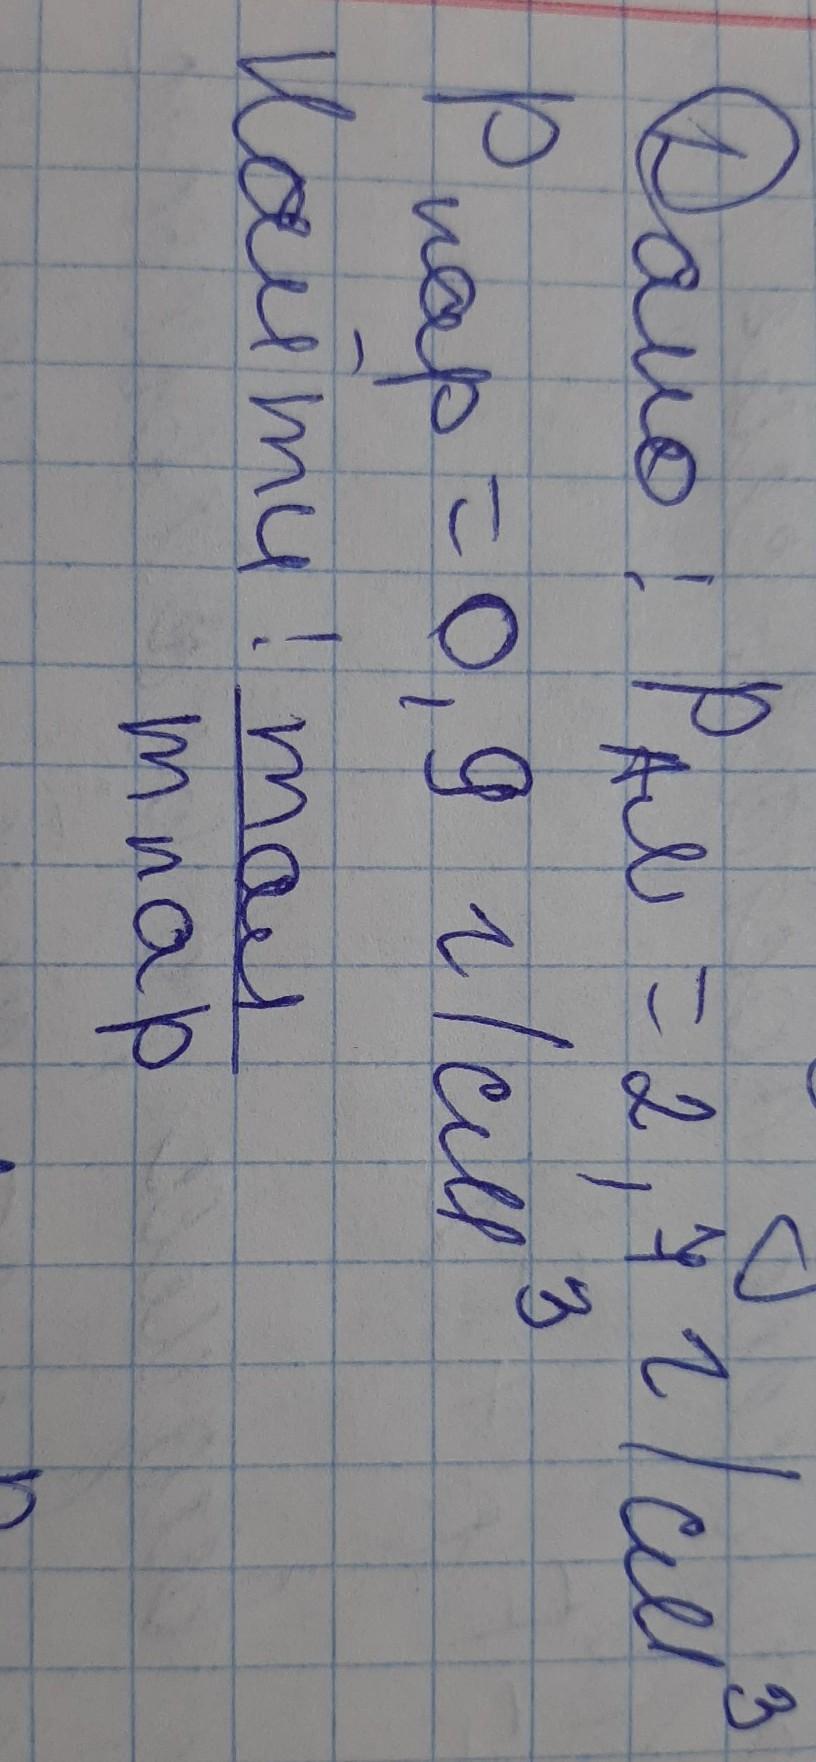 ① Дано: ρ Ал = 2,7 г/см³
ρ пар = 0,9 г/см³
Найти: m ал
m пар